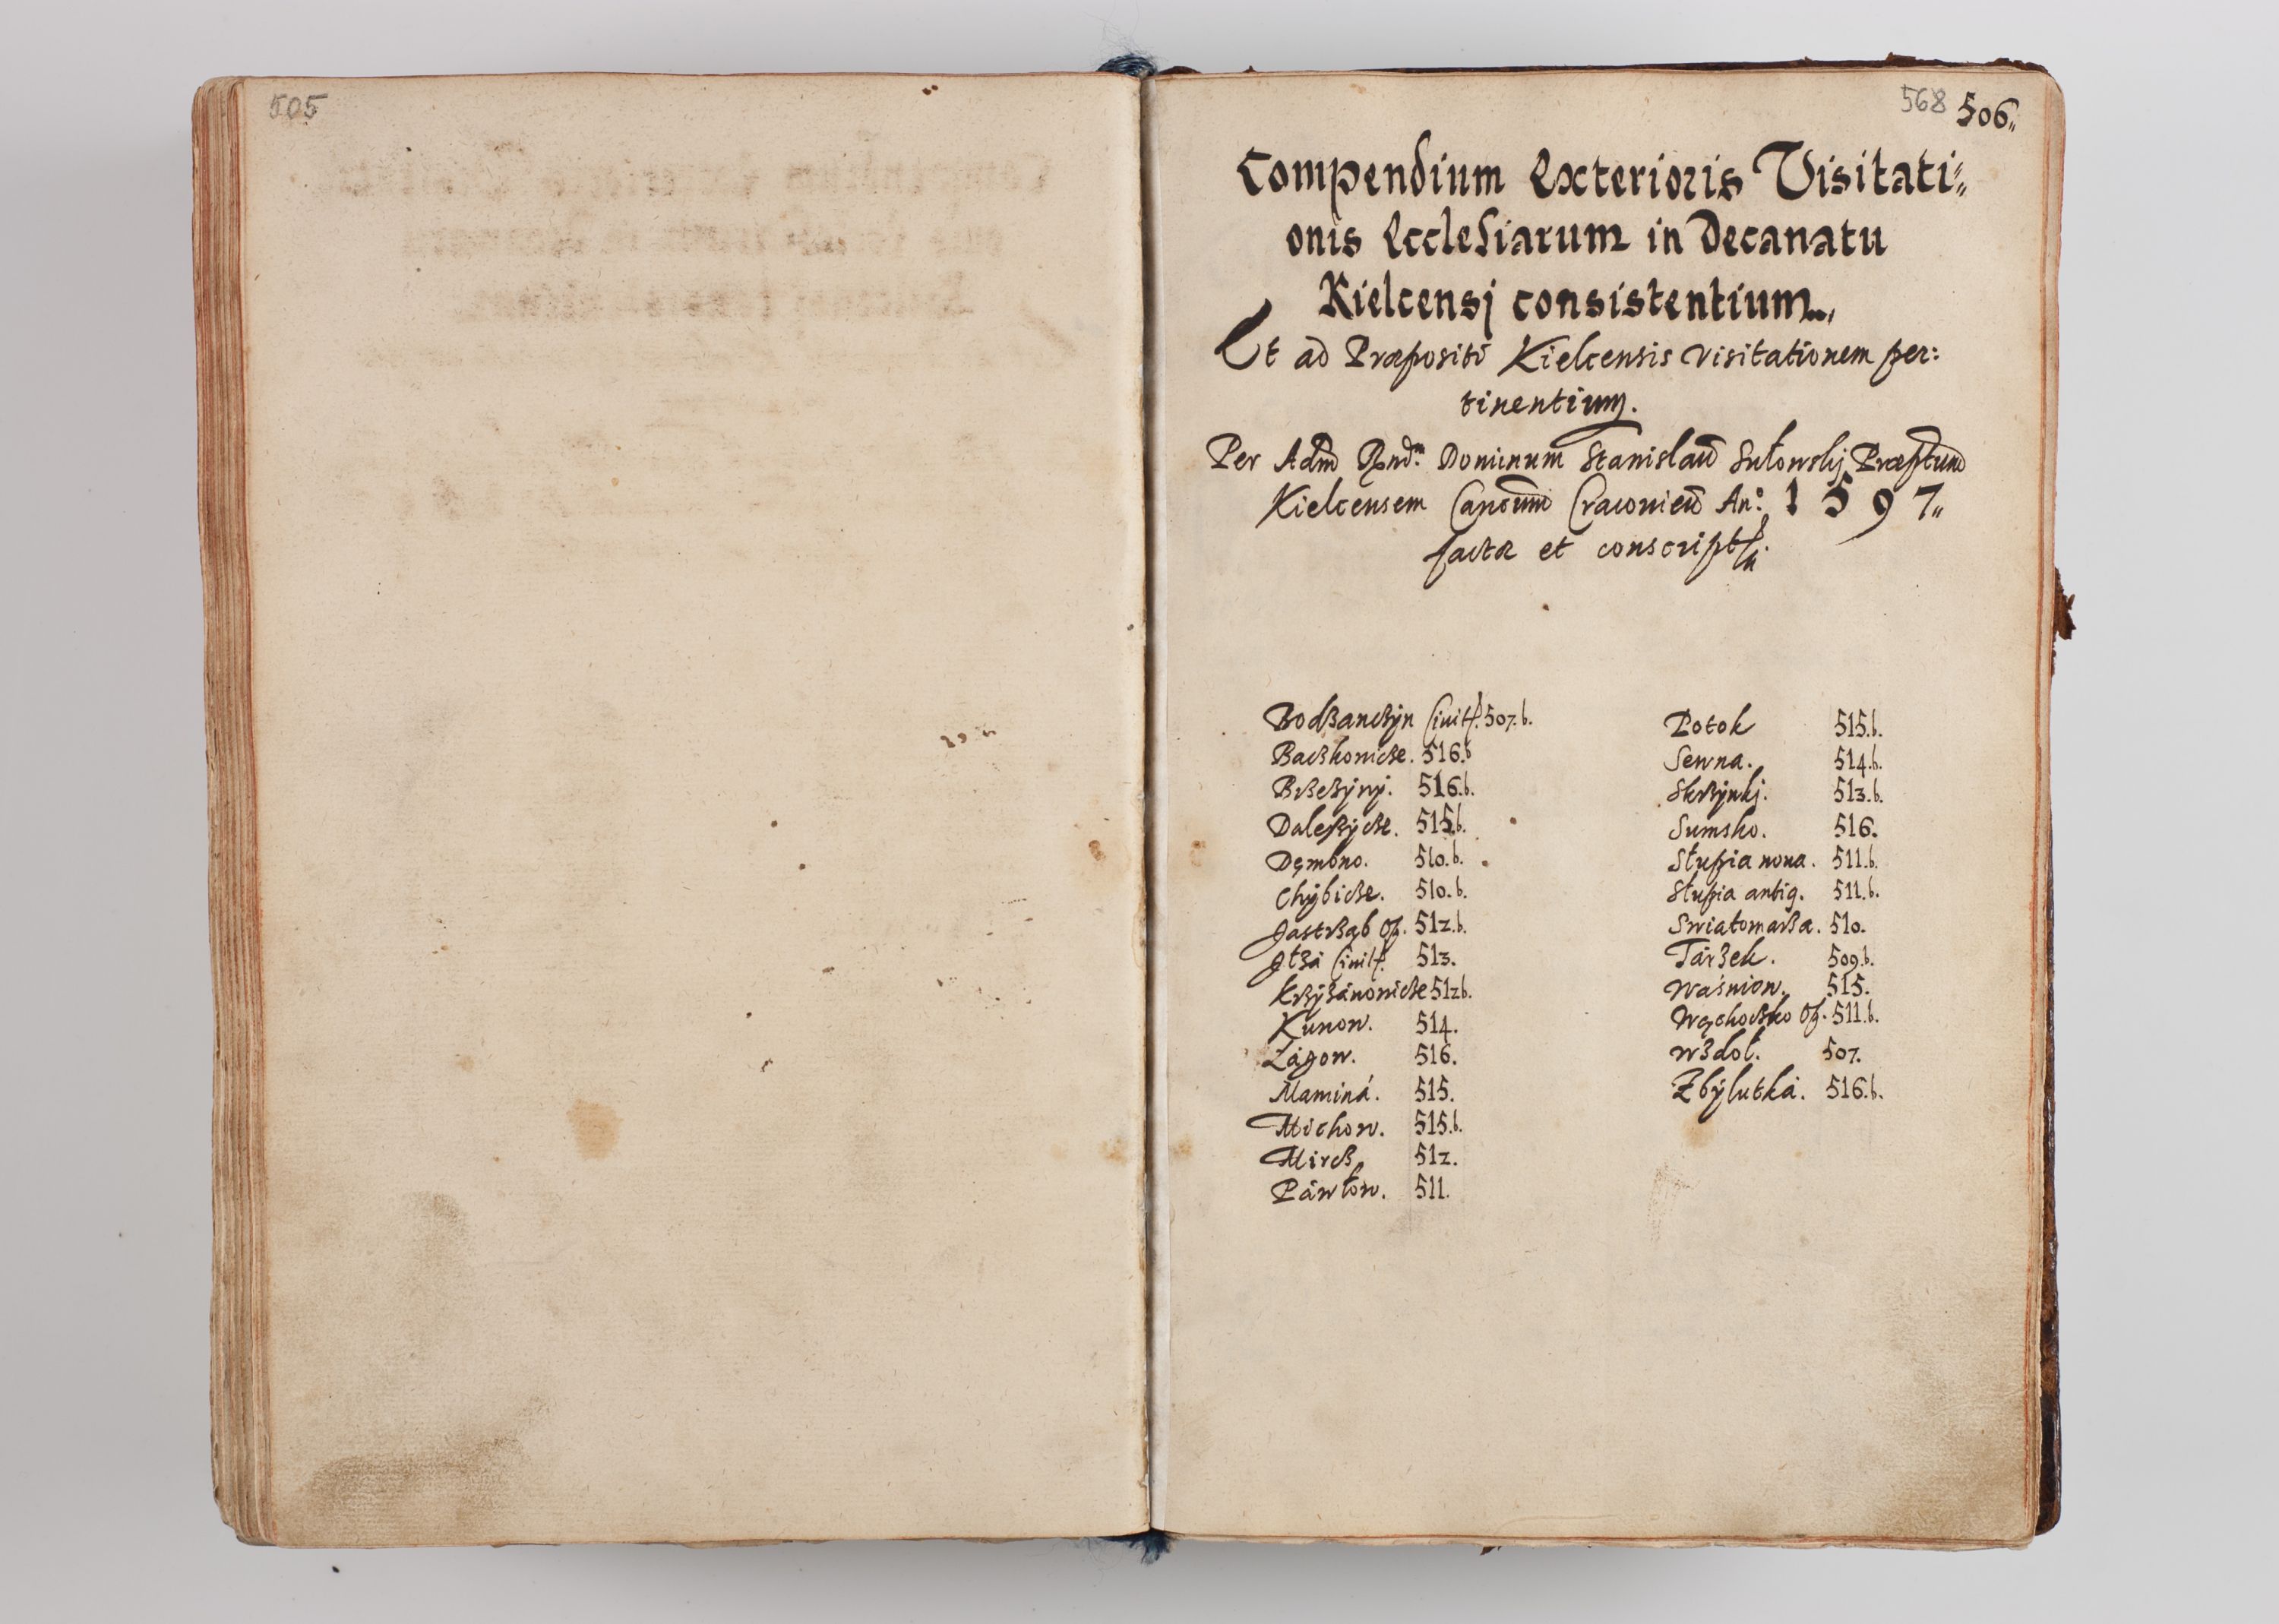 505
568 506„
Compendium Exterioris Visitati„
onis Ecclesiarum in Decanatu
Kielcensj consistentium„
Et ad Præpositi Kielcensis visitationem per:
tinentium.
Per Adm Rnd:m Dominum Stanislau Sułowskj Præptum
Kielcensem Canoum Cracovien An:o 1597„
facta et conscript
Bodzanczyn Civit. 507.b.
Baczkowicze. 516.b
Brzezyny. 516.b.
Daleszycze. 515.b.
Dęmbno. 510.b.
Chybicze. 510.b.
Jastrząb Op. 512.b.
Iłza Civit. 513.
Krzyżanowicze 512b.
Kunow. 514.
Łagow. 516.
Mamina. 515.
Michow. 515.b.
Mircz 512.
Páwłow. 511.
Potok 515.b.
Sewna. 514.b.
Skrzynkj. 513.b.
Sumsko. 516.
Słupia nova. 511.b.
Słupia antiq. 511.b.
Swiatomarza. 510.
Tarzek. 509.b.
Waśniow. 515.
Wąchoczko Op. 511.b.
Wzdoł. 507.
Zbylutka. 516.b.